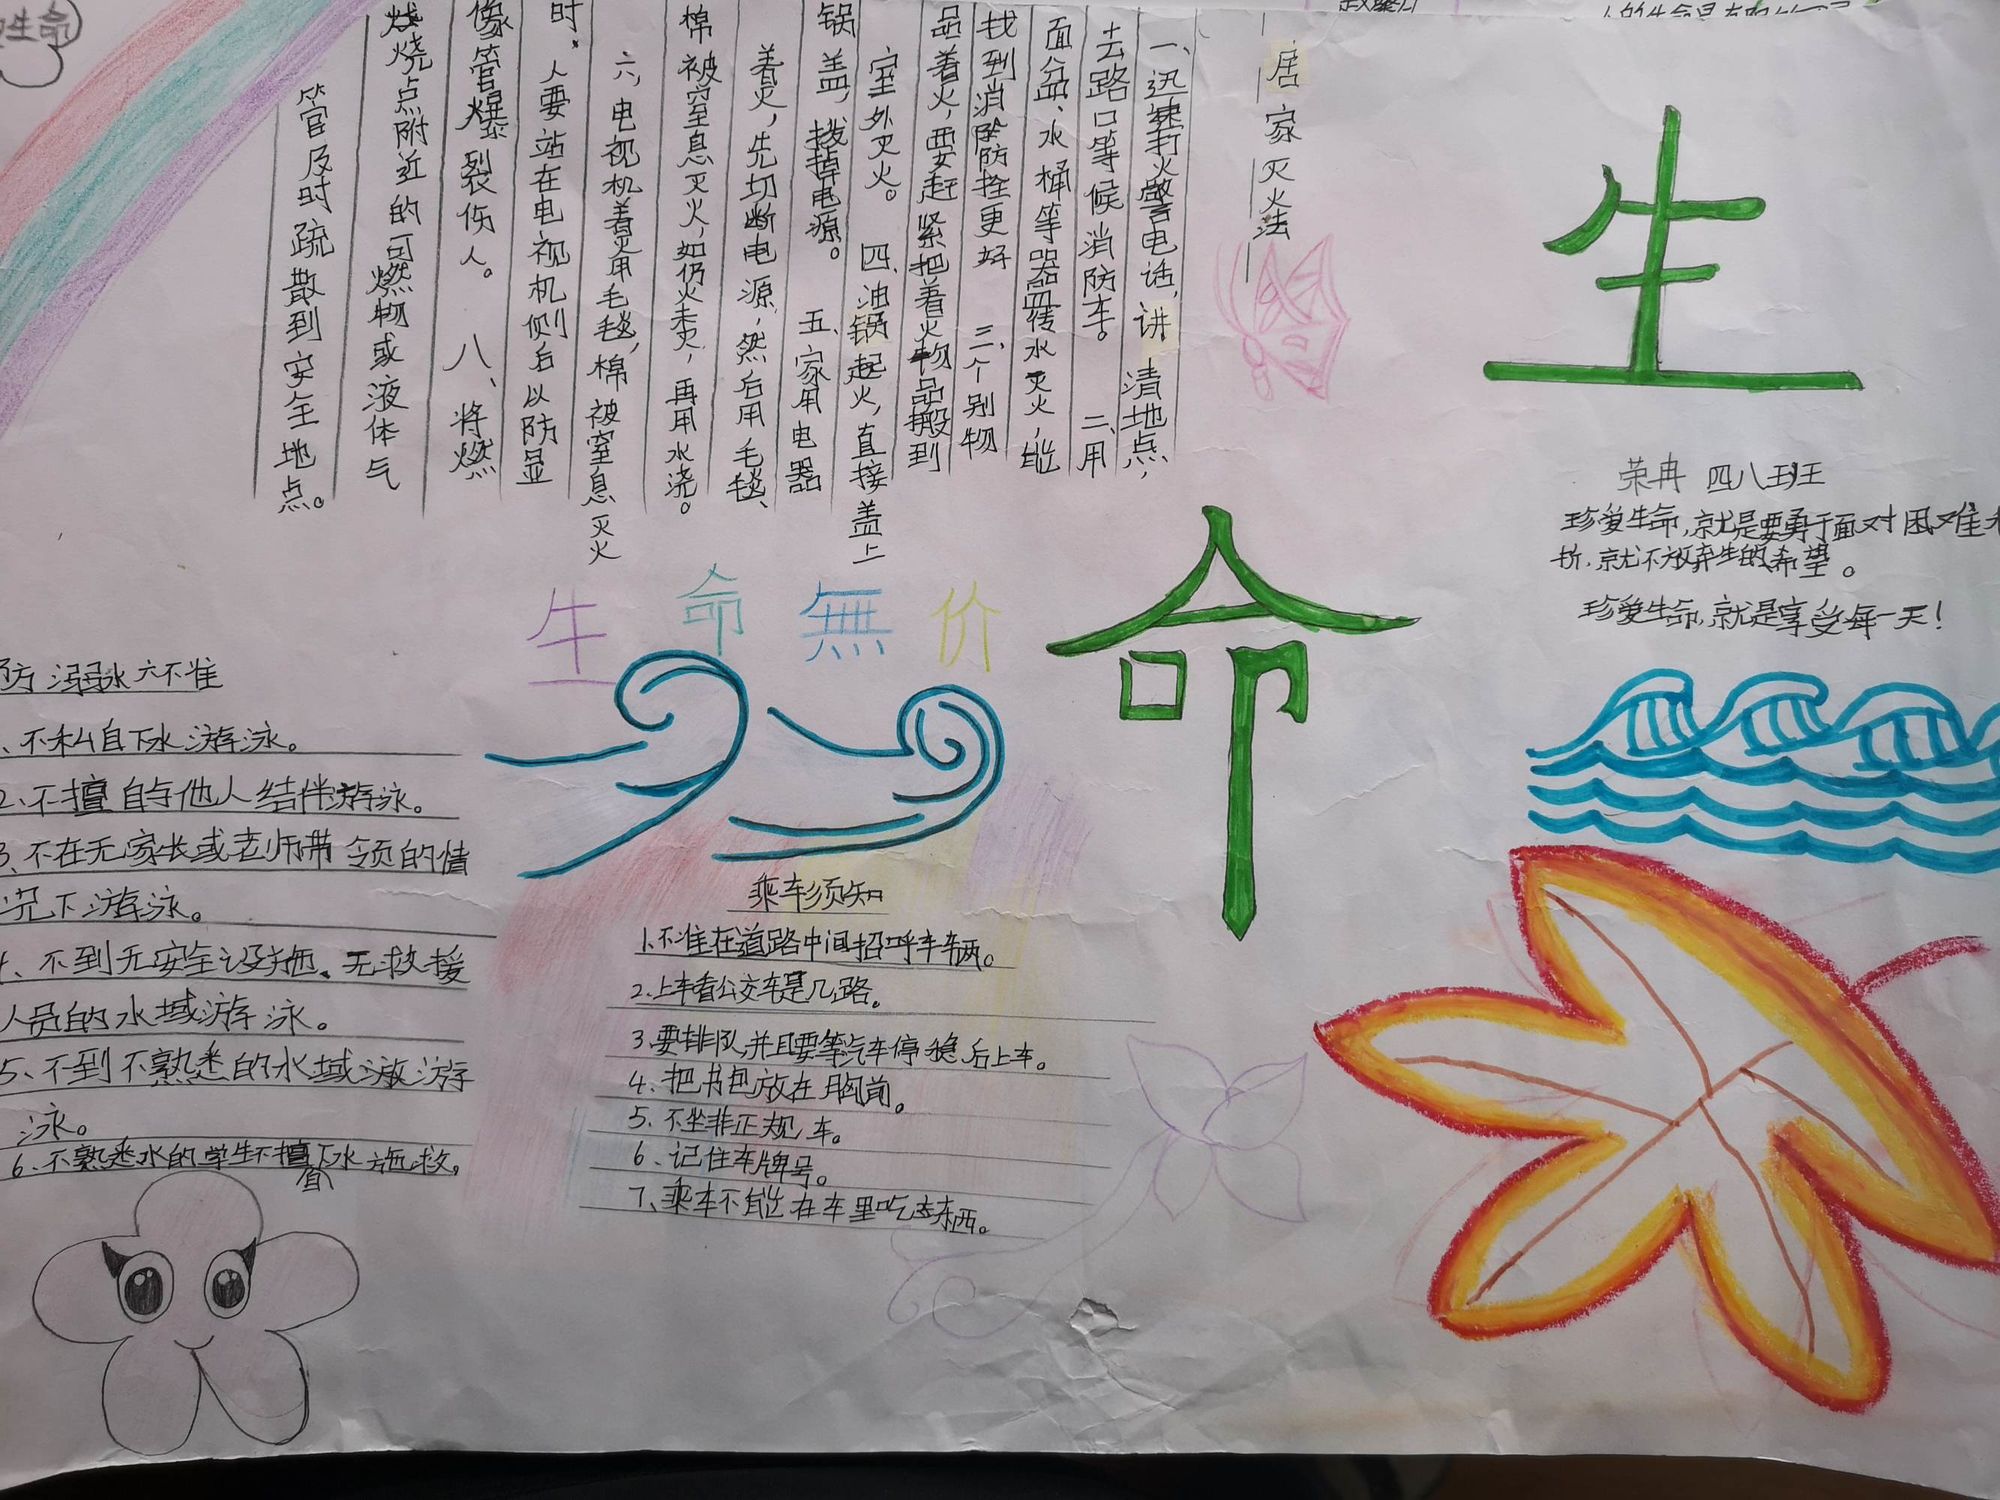 生命
生
命
荣冉 四八班
珍爱生命,就是要勇于面对困难
折,就不放弃生的希望。
珍爱生命,就是享受每一天!
居家灭火法
一、迅速打火警电话,讲清地点,
去路口等候消防车。 二、用
面盆、水桶等器皿传水灭火,能
找到消防栓更好 三、个别物
品着火,要赶紧把着火物品搬到
室外灭火。 四、油锅起火,直接盖上
锅盖,拨掉电源。 五、家用电器
着火,先切断电源,然后用毛毯、
棉被窒息灭火,如仍火未灭,再用水浇。
六、电视机着火用毛毯,棉被窒息灭火
时,人要站在电视机侧后以防显
像管爆裂伤人。 八、将燃
烧点附近的可燃物或液体气
管及时疏散到安全地点。
生命無价
防溺水六不准
、不私自下水游泳。
2、不擅自与他人结伴游泳。
3、不在无家长或老师带领的情
况下游泳。
、不到无安全设施、无救援
人员的水域游泳。
5、不到不熟悉的水域游
泳。
6、不熟悉水的学生不擅自下水施救。
乘车须知
1.不准在道路中间招呼车辆。
2.上车看公交车是几路。
3.要排队并且要等汽车停稳后上车。
4、把书包放在胸前。
5、不坐非正规车。
6、记住车牌号。
7、乘车不能在车里吃东西。